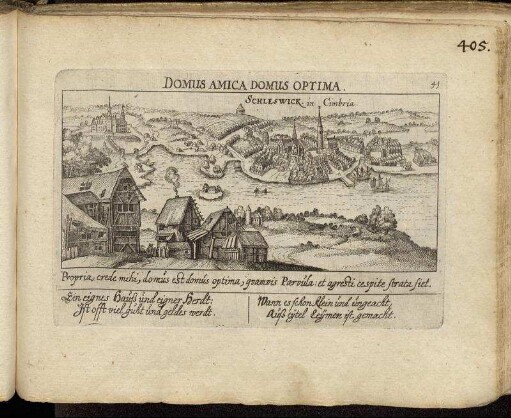 405.
DOMUS AMICA DOMUS OPTIMA.
43
SCHLESWICK in Cimbria
Propria, crede mihi, domus est domus optima, quamvis Parvula: et agresti cespite strata siet.
Ein eignes Hauß und eigner Herdt:
Ist offt viel guht und geldes werdt.
Wann es schon klein und ungeacht,
Auß eÿtel Leÿmen ist gemacht.